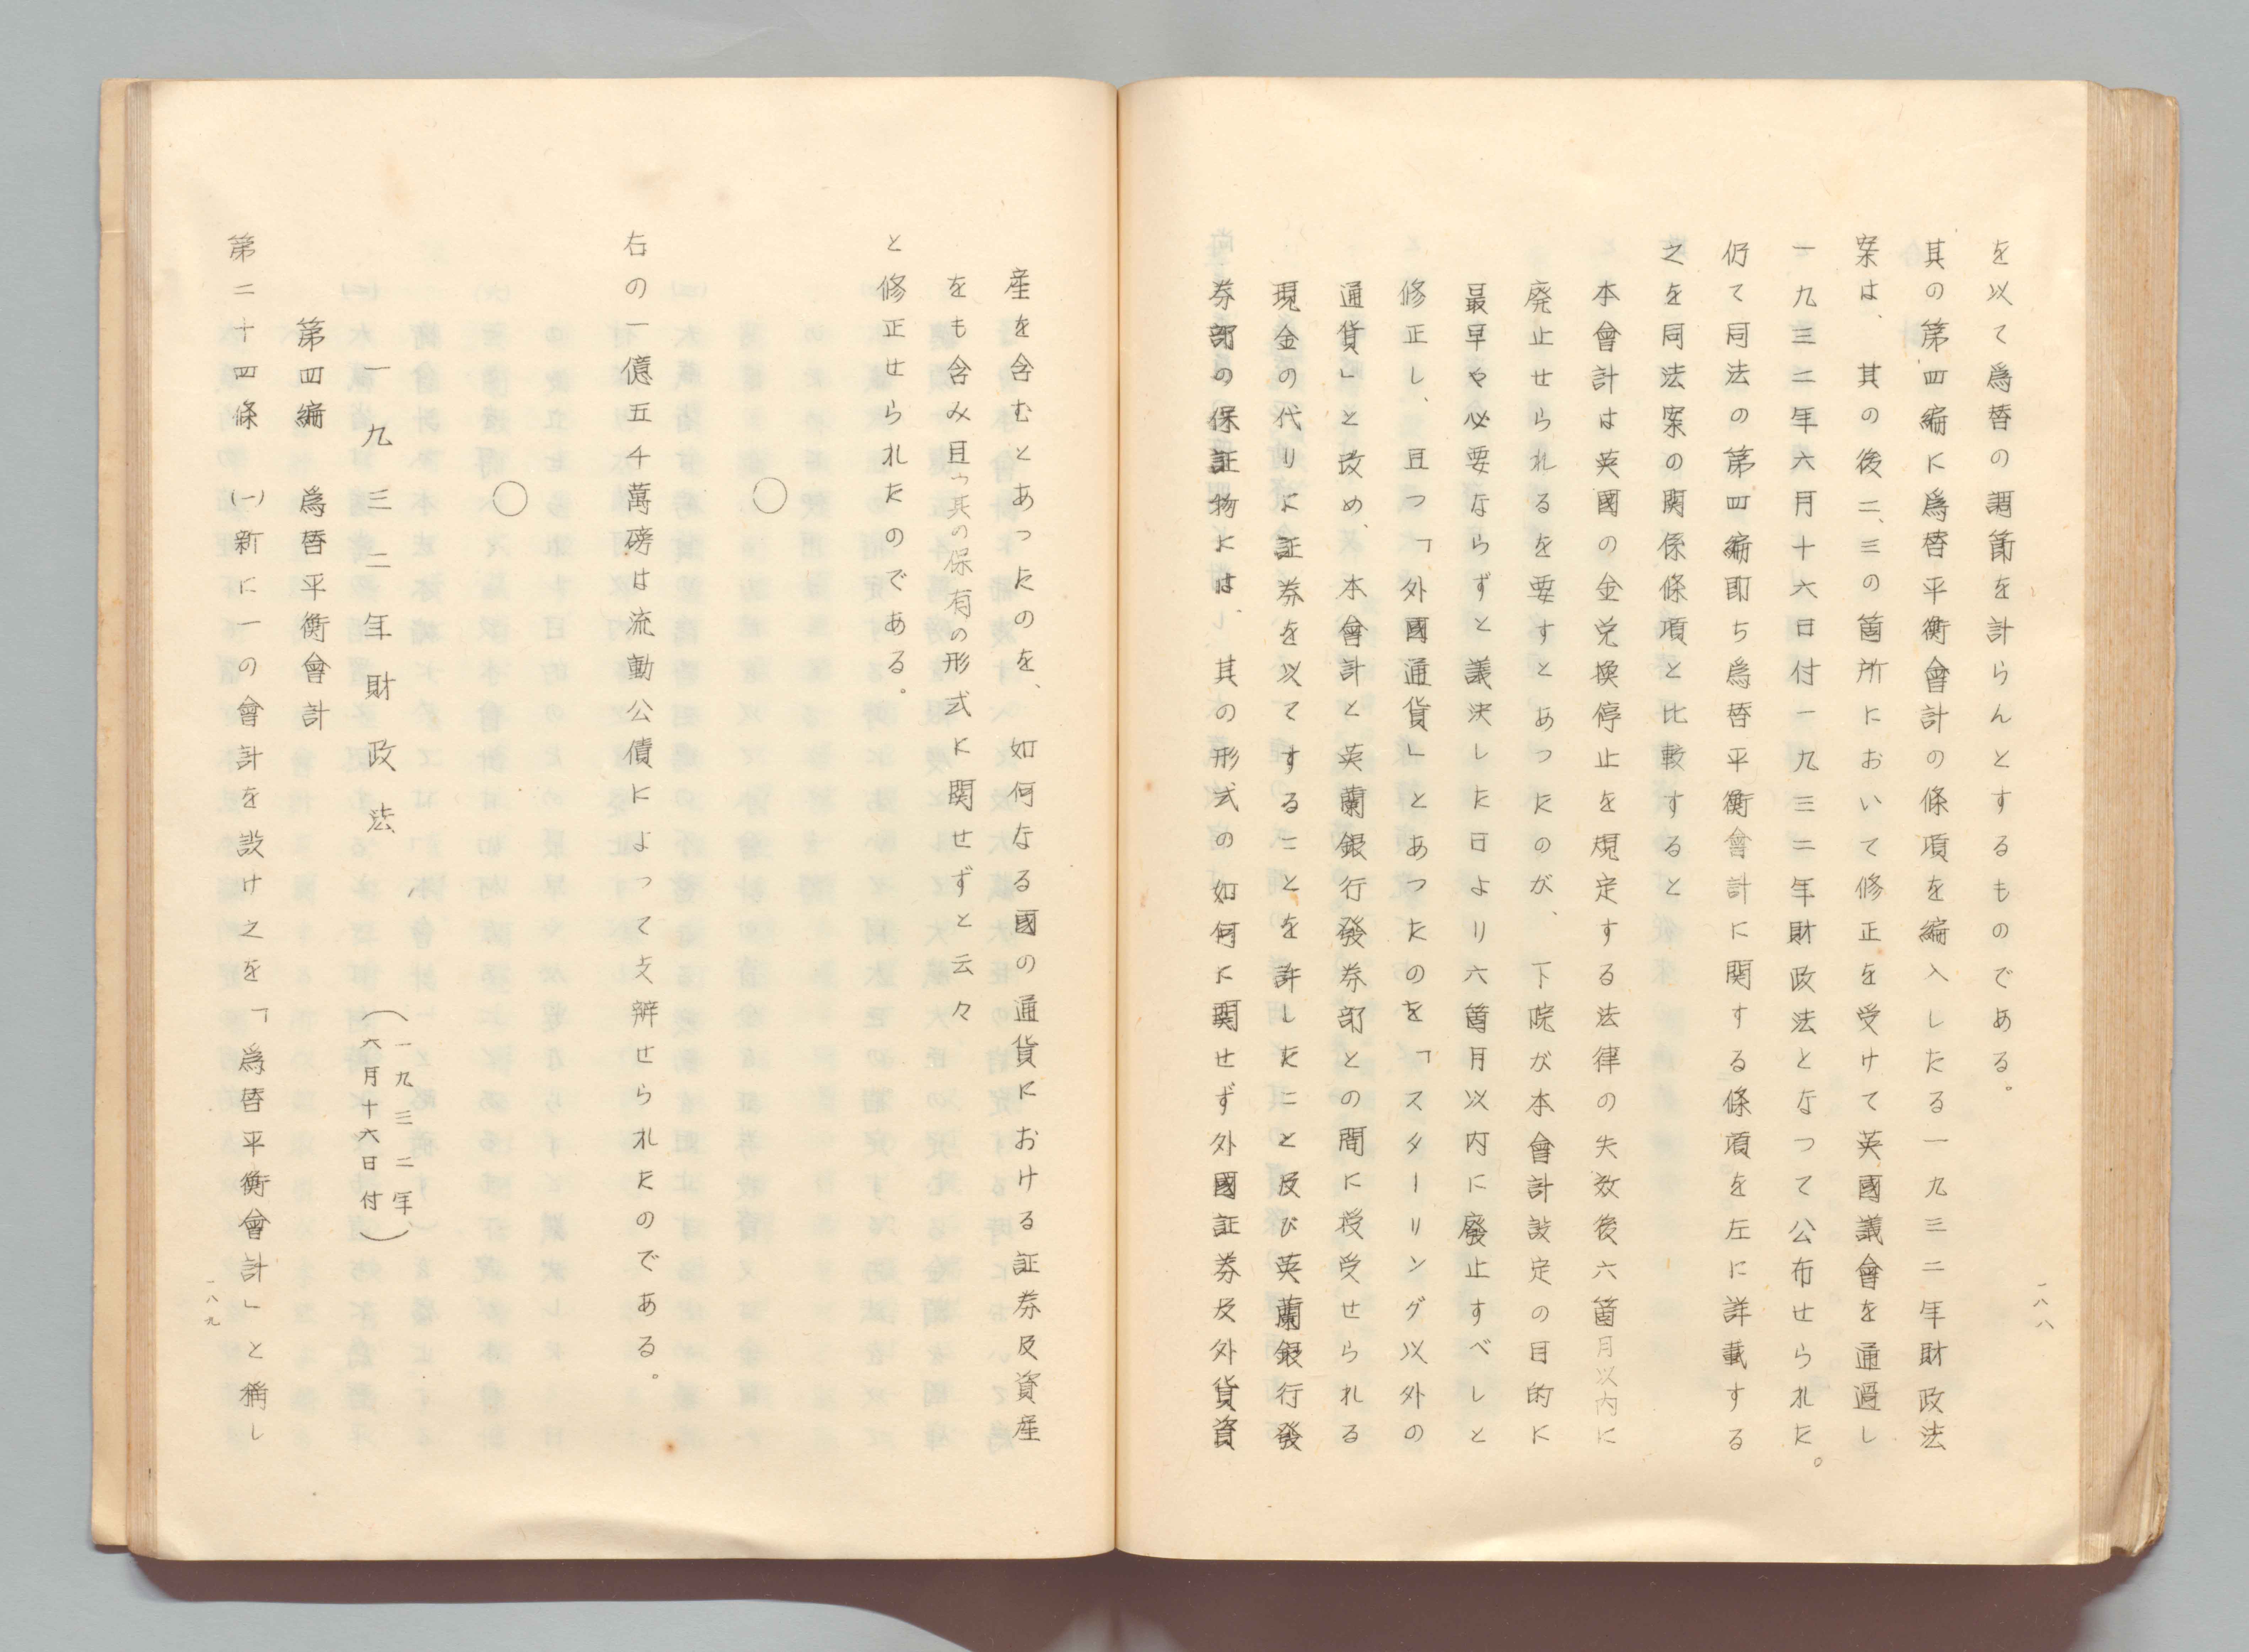 を以て爲替の調節を計らんとするものである。
其の第四編に爲替平衡會計の條項を編入したる一九三二年財政法
案は、其の後二、三の箇所において修正を受けて英國議會を通過し
一九三二年六月十六日付一九三二年財政法となつて公布せられた。
仍て同法の第四編卽ち爲替平衡會計に関する條項を左に詳載する
之を同法案の関係條項と比較すると
本會計は英國の金兌換停止を規定する法律の失效後六箇月以内に
廃止せられるを要すとあつたのが、下院が本會計設定の目的に
最早や必要ならずと議決した日より六箇月以内に廢止すべしと
修正し、且つ「外國通貨」とあつたのを「スターリング以外の
通貨」と改め、本會計と英蘭銀行發券部との間に授受せられる
現金の代りに証券を以てすることを許したこと及び英蘭銀行發
券部の保証物には、其の形式の如何に関せず外國証券及外貨資
一八八
産を含むとあつたのを、如何なる國の通貨における証券及資産
をも含み且つ其の保有の形式に関せずと云々
と修正せられたのである。
○
右の一億五千萬磅は流動公債によつて支辨せられたのである。
○
一九三二年財政法
(一九三二年
六月十六日付)
第四編 爲替平衡會計
第二十四條 (一)新に一の會計を設け之を「爲替平衡會計」と稱し
一八九